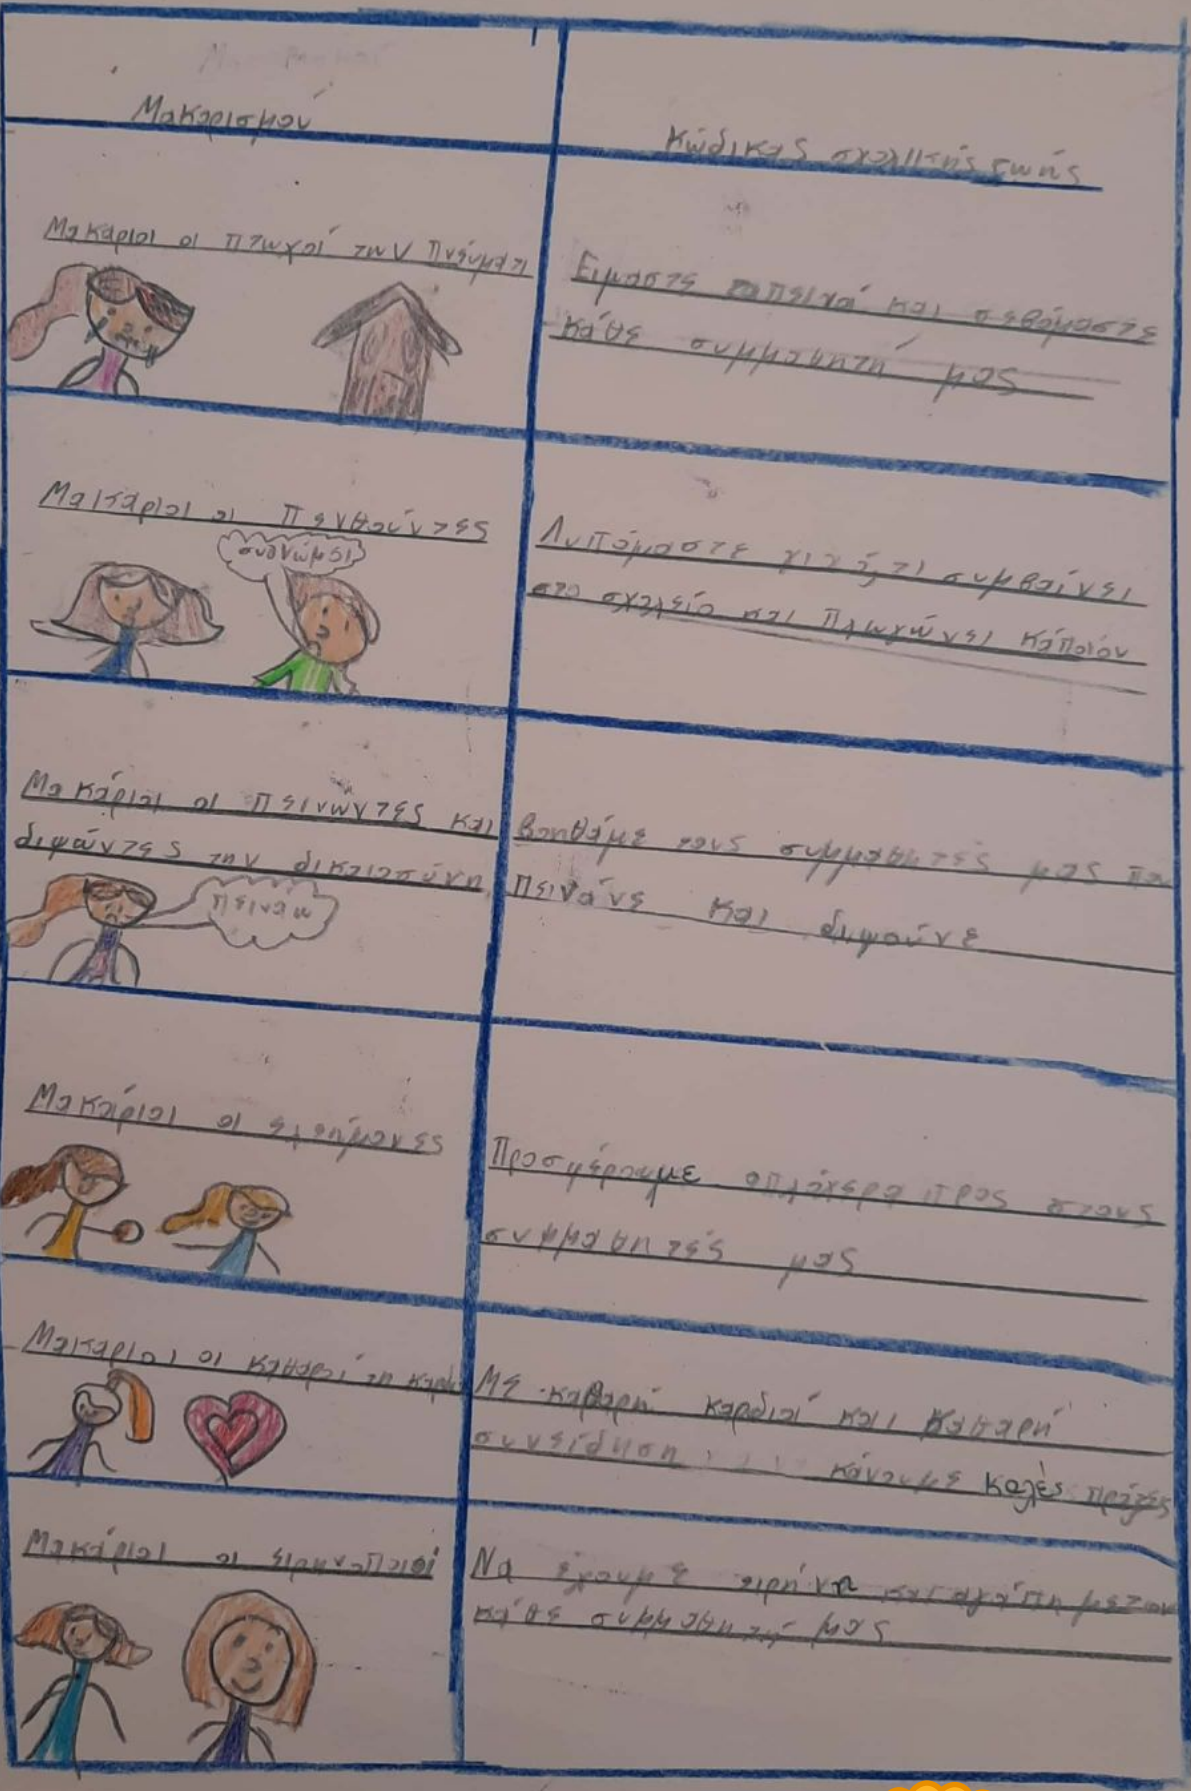 Μακαρισμού
Κώδικας σχολικής ζωής
Μακάριοι οι πτωχοί των Πνεύματι
Ειμαστε ταπεινοί και σεβόμαστε
κάθε συμμαθητή μας
Μακάριοι οι Πενθούντες
συγνώμει
Λυπόμαστε για ό,τι συμβαίνει
στο σχολείο και πληγώνει κάποιον
Μακάριοι οι πεινώντες και
διψώντες την δικαιοσύνη
πεινάω
βοηθάμε τους συμμαθητές μας που
πεινάνε και διψούνε
Μακάριοι οι ελεήμονες
Προσφέρουμε απλόχερα προς στους
συμμαθητές μας
Μακάριοι οι καθαροί τη καρδι
Με καθαρή καρδιά και καθαρή
συνείδηση κάνουμε καλές πράξεις
Μακάριοι οι ειρηνοποιοί
Να έχουμε ειρήνη και αγάπη με τον
κάθε συμμαθητή μας